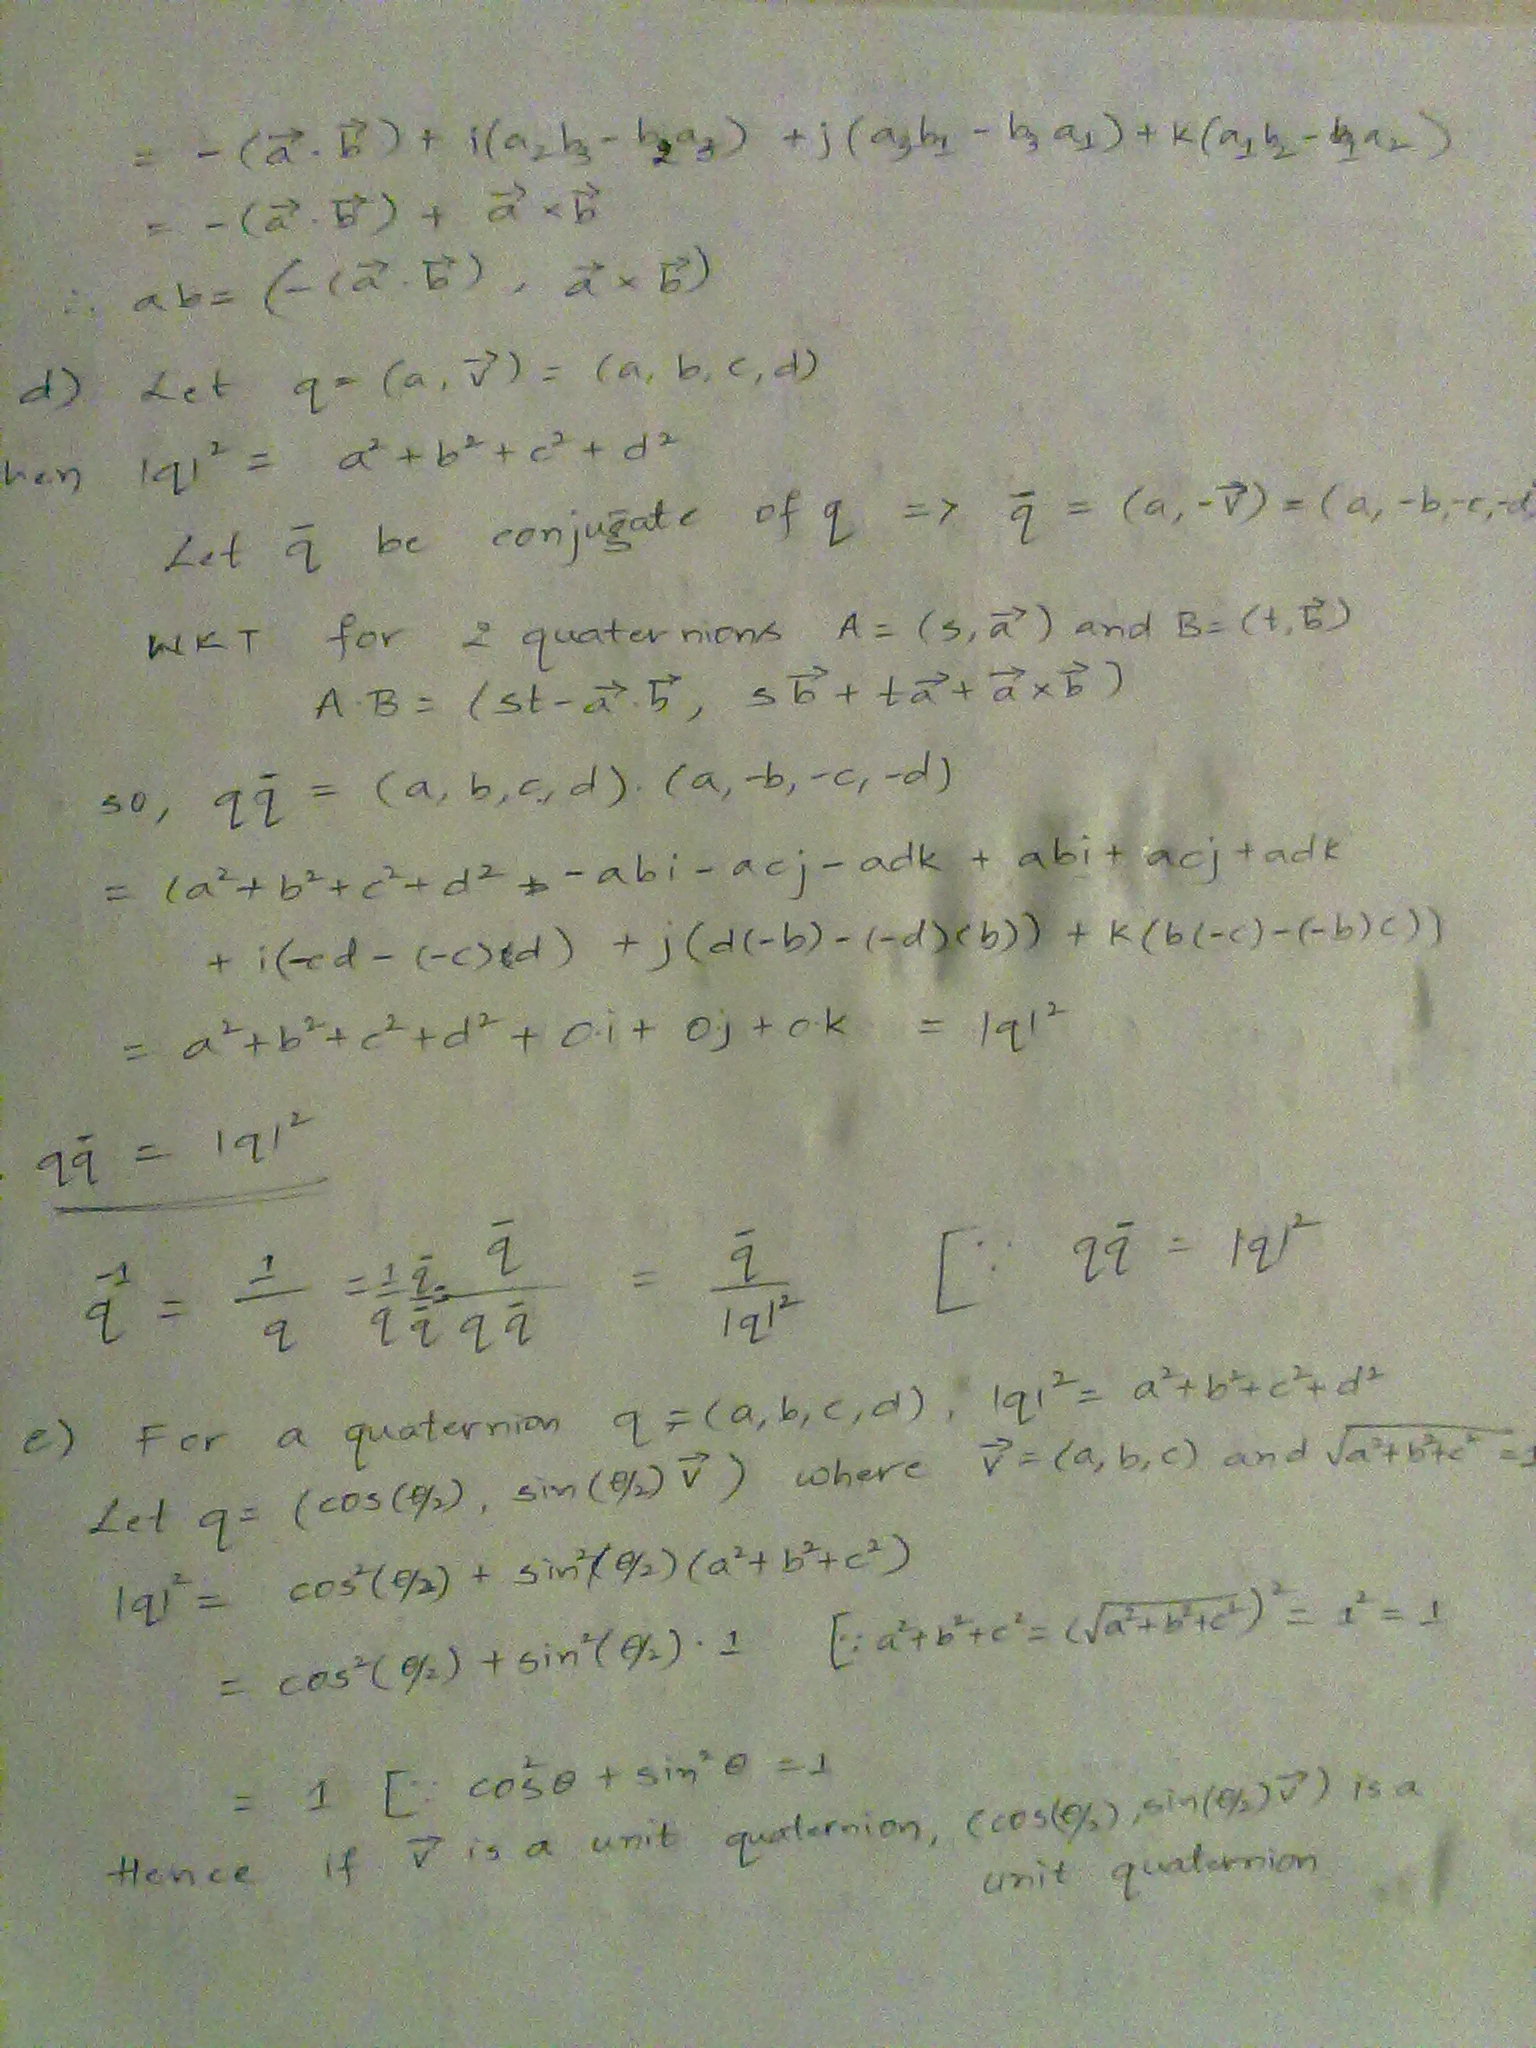 = -(a⃗ . b⃗) + i(a₂b₃ - b₂a₃) + j(a₃b₁ - b₃a₁) + k(a₁b₂ - b₁a₂)
= -(a⃗ . b⃗) + a⃗ × b⃗
∴ ab = (-(a⃗ . b⃗), a⃗ × b⃗)
d) Let q = (a, v⃗) = (a, b, c, d)
hen |q|² = a² + b² + c² + d²
Let q̄ be conjugate of q => q̄ = (a, -v⃗) = (a, -b, -c, -d
WKT for 2 quaternions A = (s, a⃗) and B = (t, b⃗)
A.B = (st - a⃗ . b⃗, s b⃗ + t a⃗ + a⃗ × b⃗)
so, q q̄ = (a, b, c, d) . (a, -b, -c, -d)
= (a² + b² + c² + d² + - abi - acj - adk + abi + acj + adk
+ i(-cd - (-c)(d) + j(d(-b) - (-d)(b)) + k(b(-c) - (-b)c))
= a² + b² + c² + d² + 0.i + 0j + 0.k = |q|²
q q̄ = |q|²
q⁻¹ = 1/q = 1/q q̄/q̄ = q̄/(q q̄) = q̄/|q|² [∵ q q̄ = |q|²
e) For a quaternion q = (a, b, c, d), |q|² = a² + b² + c² + d²
Let q = (cos(θ/2), sin(θ/2) v⃗) where v⃗ = (a, b, c) and √(a² + b² + c²) = 1
|q|² = cos²(θ/2) + sin²(θ/2)(a² + b² + c²)
= cos²(θ/2) + sin²(θ/2) . 1 [∵ a² + b² + c² = (√(a² + b² + c²))² = 1² = 1
= 1 [∵ cos²θ + sin²θ = 1
Hence if v⃗ is a unit quaternion, (cos(θ/2), sin(θ/2) v⃗) is a
unit quaternion